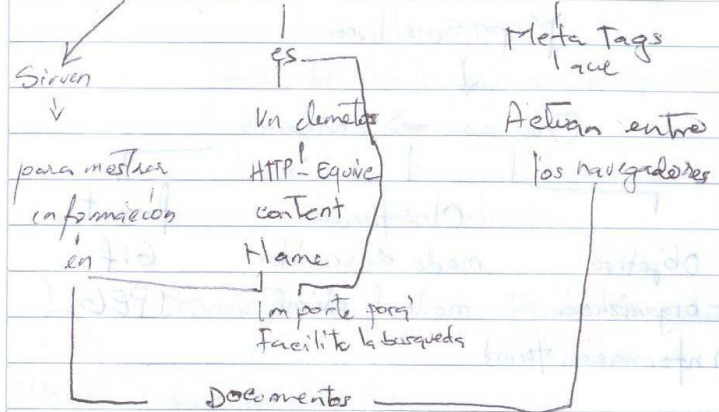 Sirven
para mostrar
información
en
es
Un elemetos
HTTP-Equive
content
Name
Importe porq'
Facilita la busqueda
Meta Tags
que
Actuan entre
los navegadores
Documentos